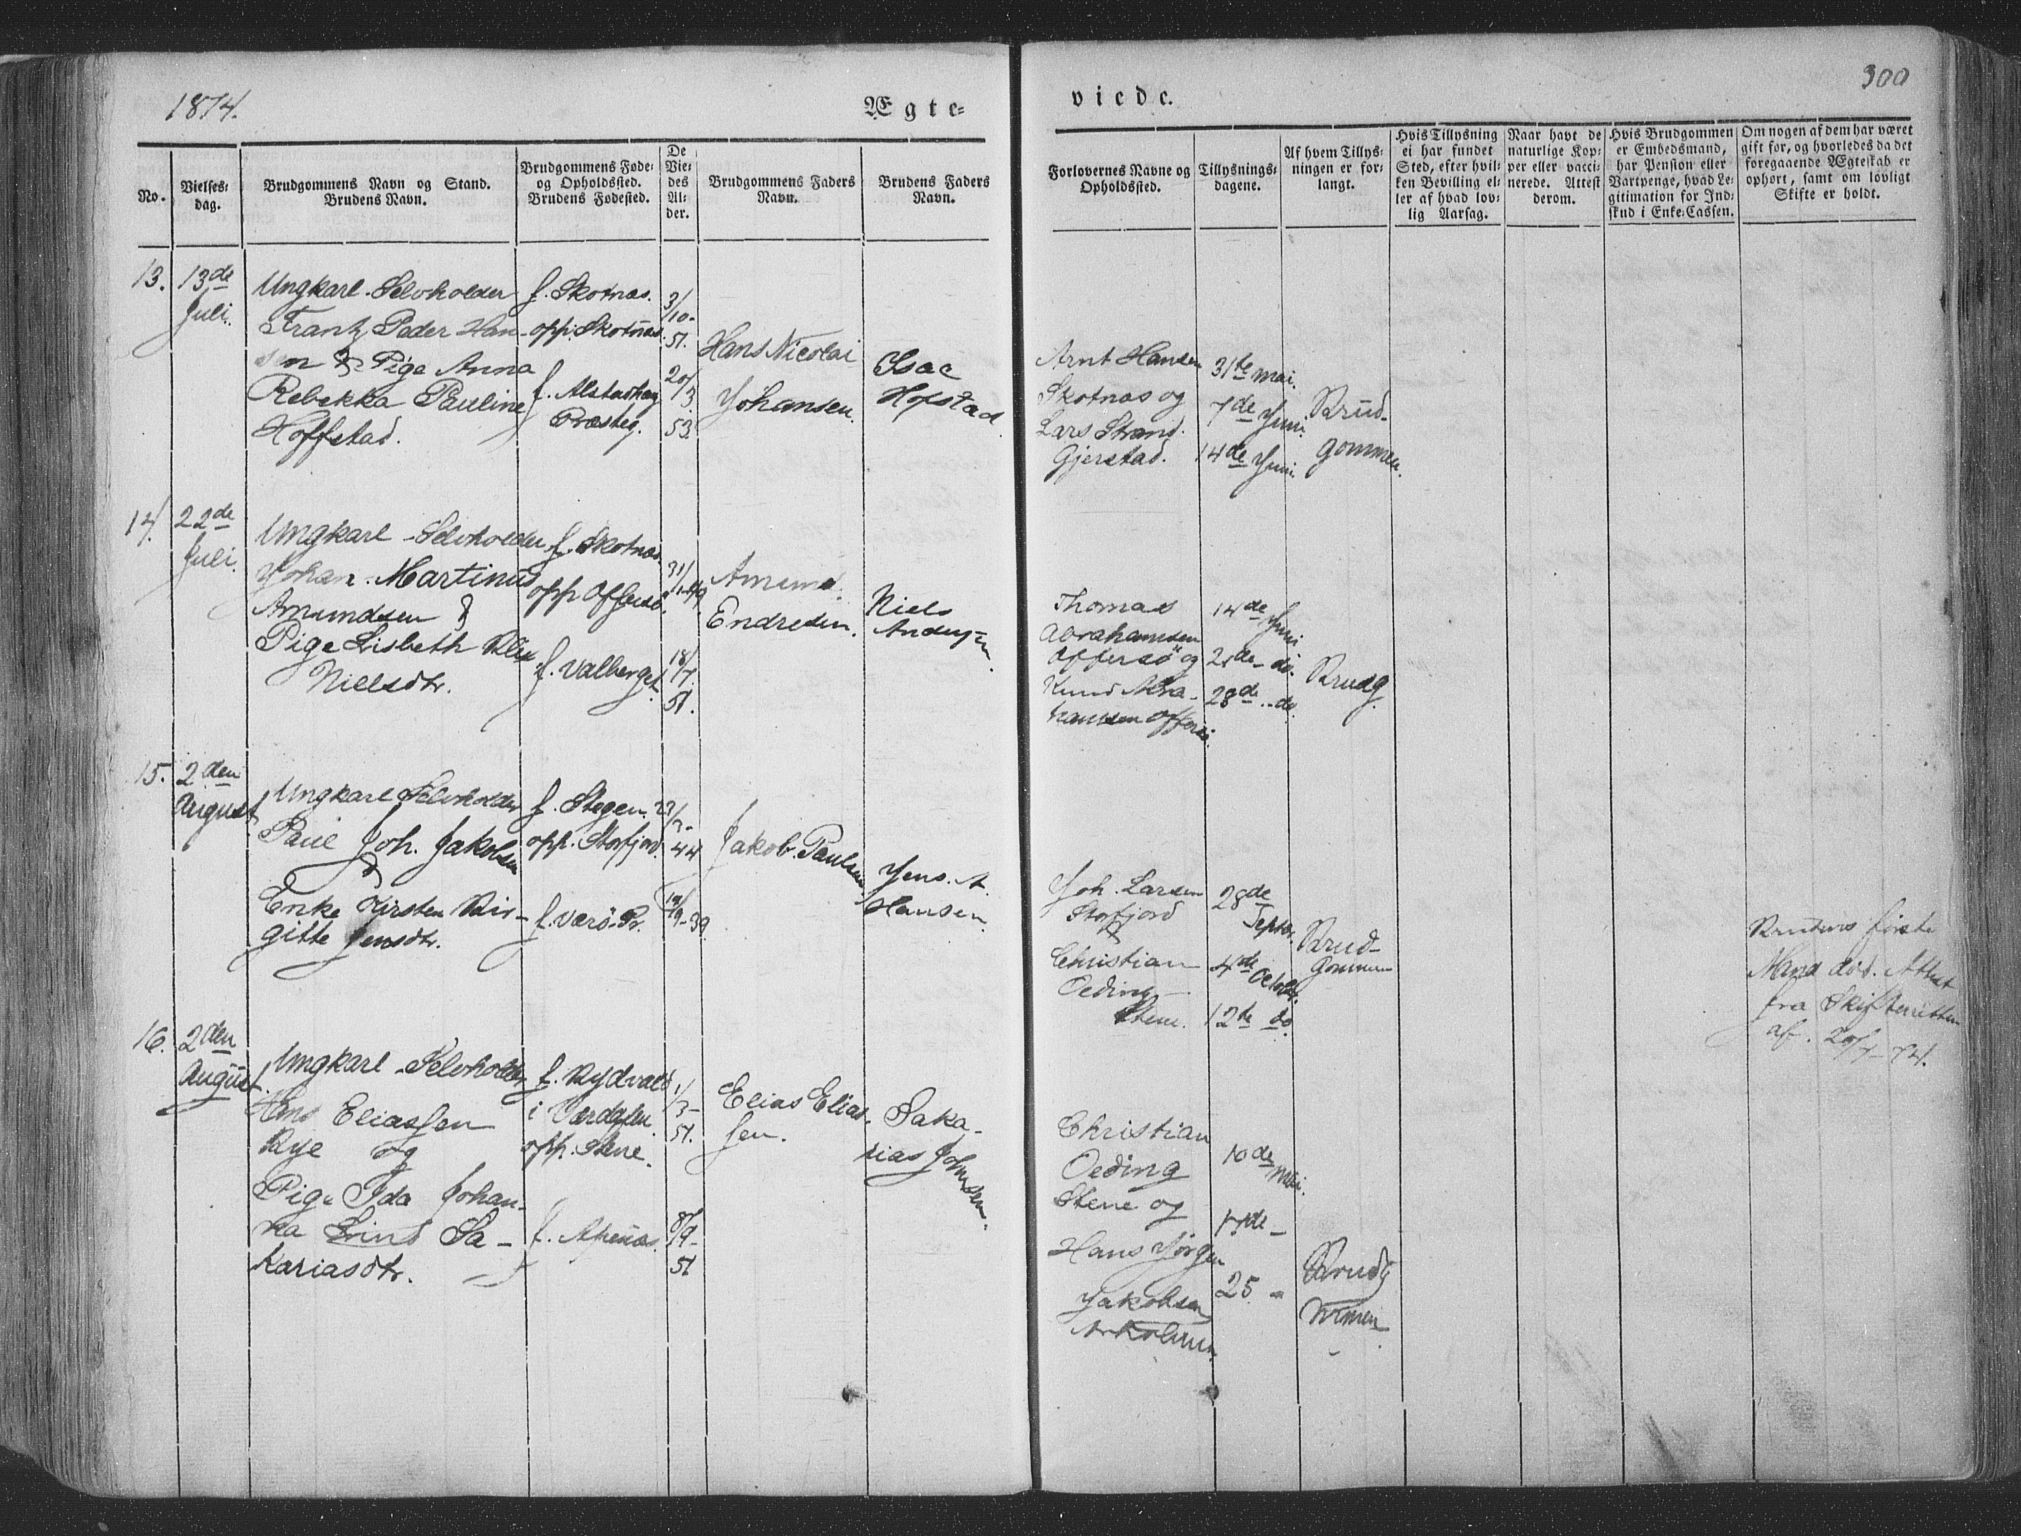 1874.
Ægte=
viede.
300
No.
Vielses=
dag.
Brudgommens Navn og Stand.
Brudens Navn.
Brudgommens Føde=
og Opholdssted.
Brudens Fødested.
De
Vie=
des
Al=
der.
Brudgommens Faders
Navn.
Brudens Faders
Navn.
Forlovernes Navne og
Opholdssted.
Tillysnings=
dagene.
Af hvem Tillys=
ningen er for=
langt.
Hvis Tillysning
ei har fundet
Sted, efter hvil=
ken Bevilling el=
ler af hvad lov=
lig Aarsag.
Naar havt de
naturlige Kop=
per eller vacci=
nerede. Attest
derom.
Hvis Brudgommen
er Embedsmand,
har Pension eller
Vartpenge, hvad Le=
gitimation for Ind=
skud i Enke=Cassen.
Om nogen af dem har været
gift før, og hvorledes da det
foregaaende Ægteskab er
ophørt, samt om lovligt
Skifte er holdt.
13.
13de
Juli.
Ungkarl Selvholder
Frantz Peder Han-
sen & Pige Anna
Rebekka Pauline
Hoffstad.
f. Skotnæs.
opp. Skotnæs.
f. Alstadhoug
Præsteg.
3/
10-
51.
20/
3.
53.
Hans Nicolai
Johansen.
Isac
Hofstad.
Arnt Hansen
Skotnæs og
Lars Strand
Gjerstad.
31te mai.
7de Juni.
14de Juni.
Brud-
gommen.
14.
22de
Juli.
Ungkarl Selvholder
Johan Martinus
Amundsen &
Pige Lisbeth
Nielsdtr.
f. Skotnæs.
opp Offersø.
f. Valberget
31/
1-49
18/
7.
51.
Amund
Endresen.
Niels
Andersen.
Thomas
Abrahamsen
Offersø og
Knud Abra-
hamsen Offersø.
14de Juni
21de - do.
28de - do.
Brudg.
15.
2den
August
Ungkarl Selvholder
Paul Joh. Jakobsen
&
Enke Kirsten Bir-
gitte Jensdtr.
f. Stegen
opp. Storfjord.
f. Værø Pr.
44
9-39
Jakob Paulsen
Jens A.
Hansen
Joh. Larsen
Storfjord
&
Christian
Oeding
Stene.
28de
Septbr.
4de Octobr.
12te do.
Brud-
gommen
Brudens første
Mand død. Attest
fra Skifteretten
af. 20/7-74.
16.
2den
August.
Ungkarl Selvholder
Hans Eliassen
Rye og
Pige Ida Johan-
na Sa-
kariasdtr.
f. Rydvald
i Værdalen
opp. Stene.
f. Apenæs.
1/
3-
51.
8/
9-
51
Elias Elias-
sen.
Saka-
rias Johnsen.
Christian
Oeding
Stene og
Hans Jørgen
Jakobsen
10de Mai.
17de -
25 -
Brudg